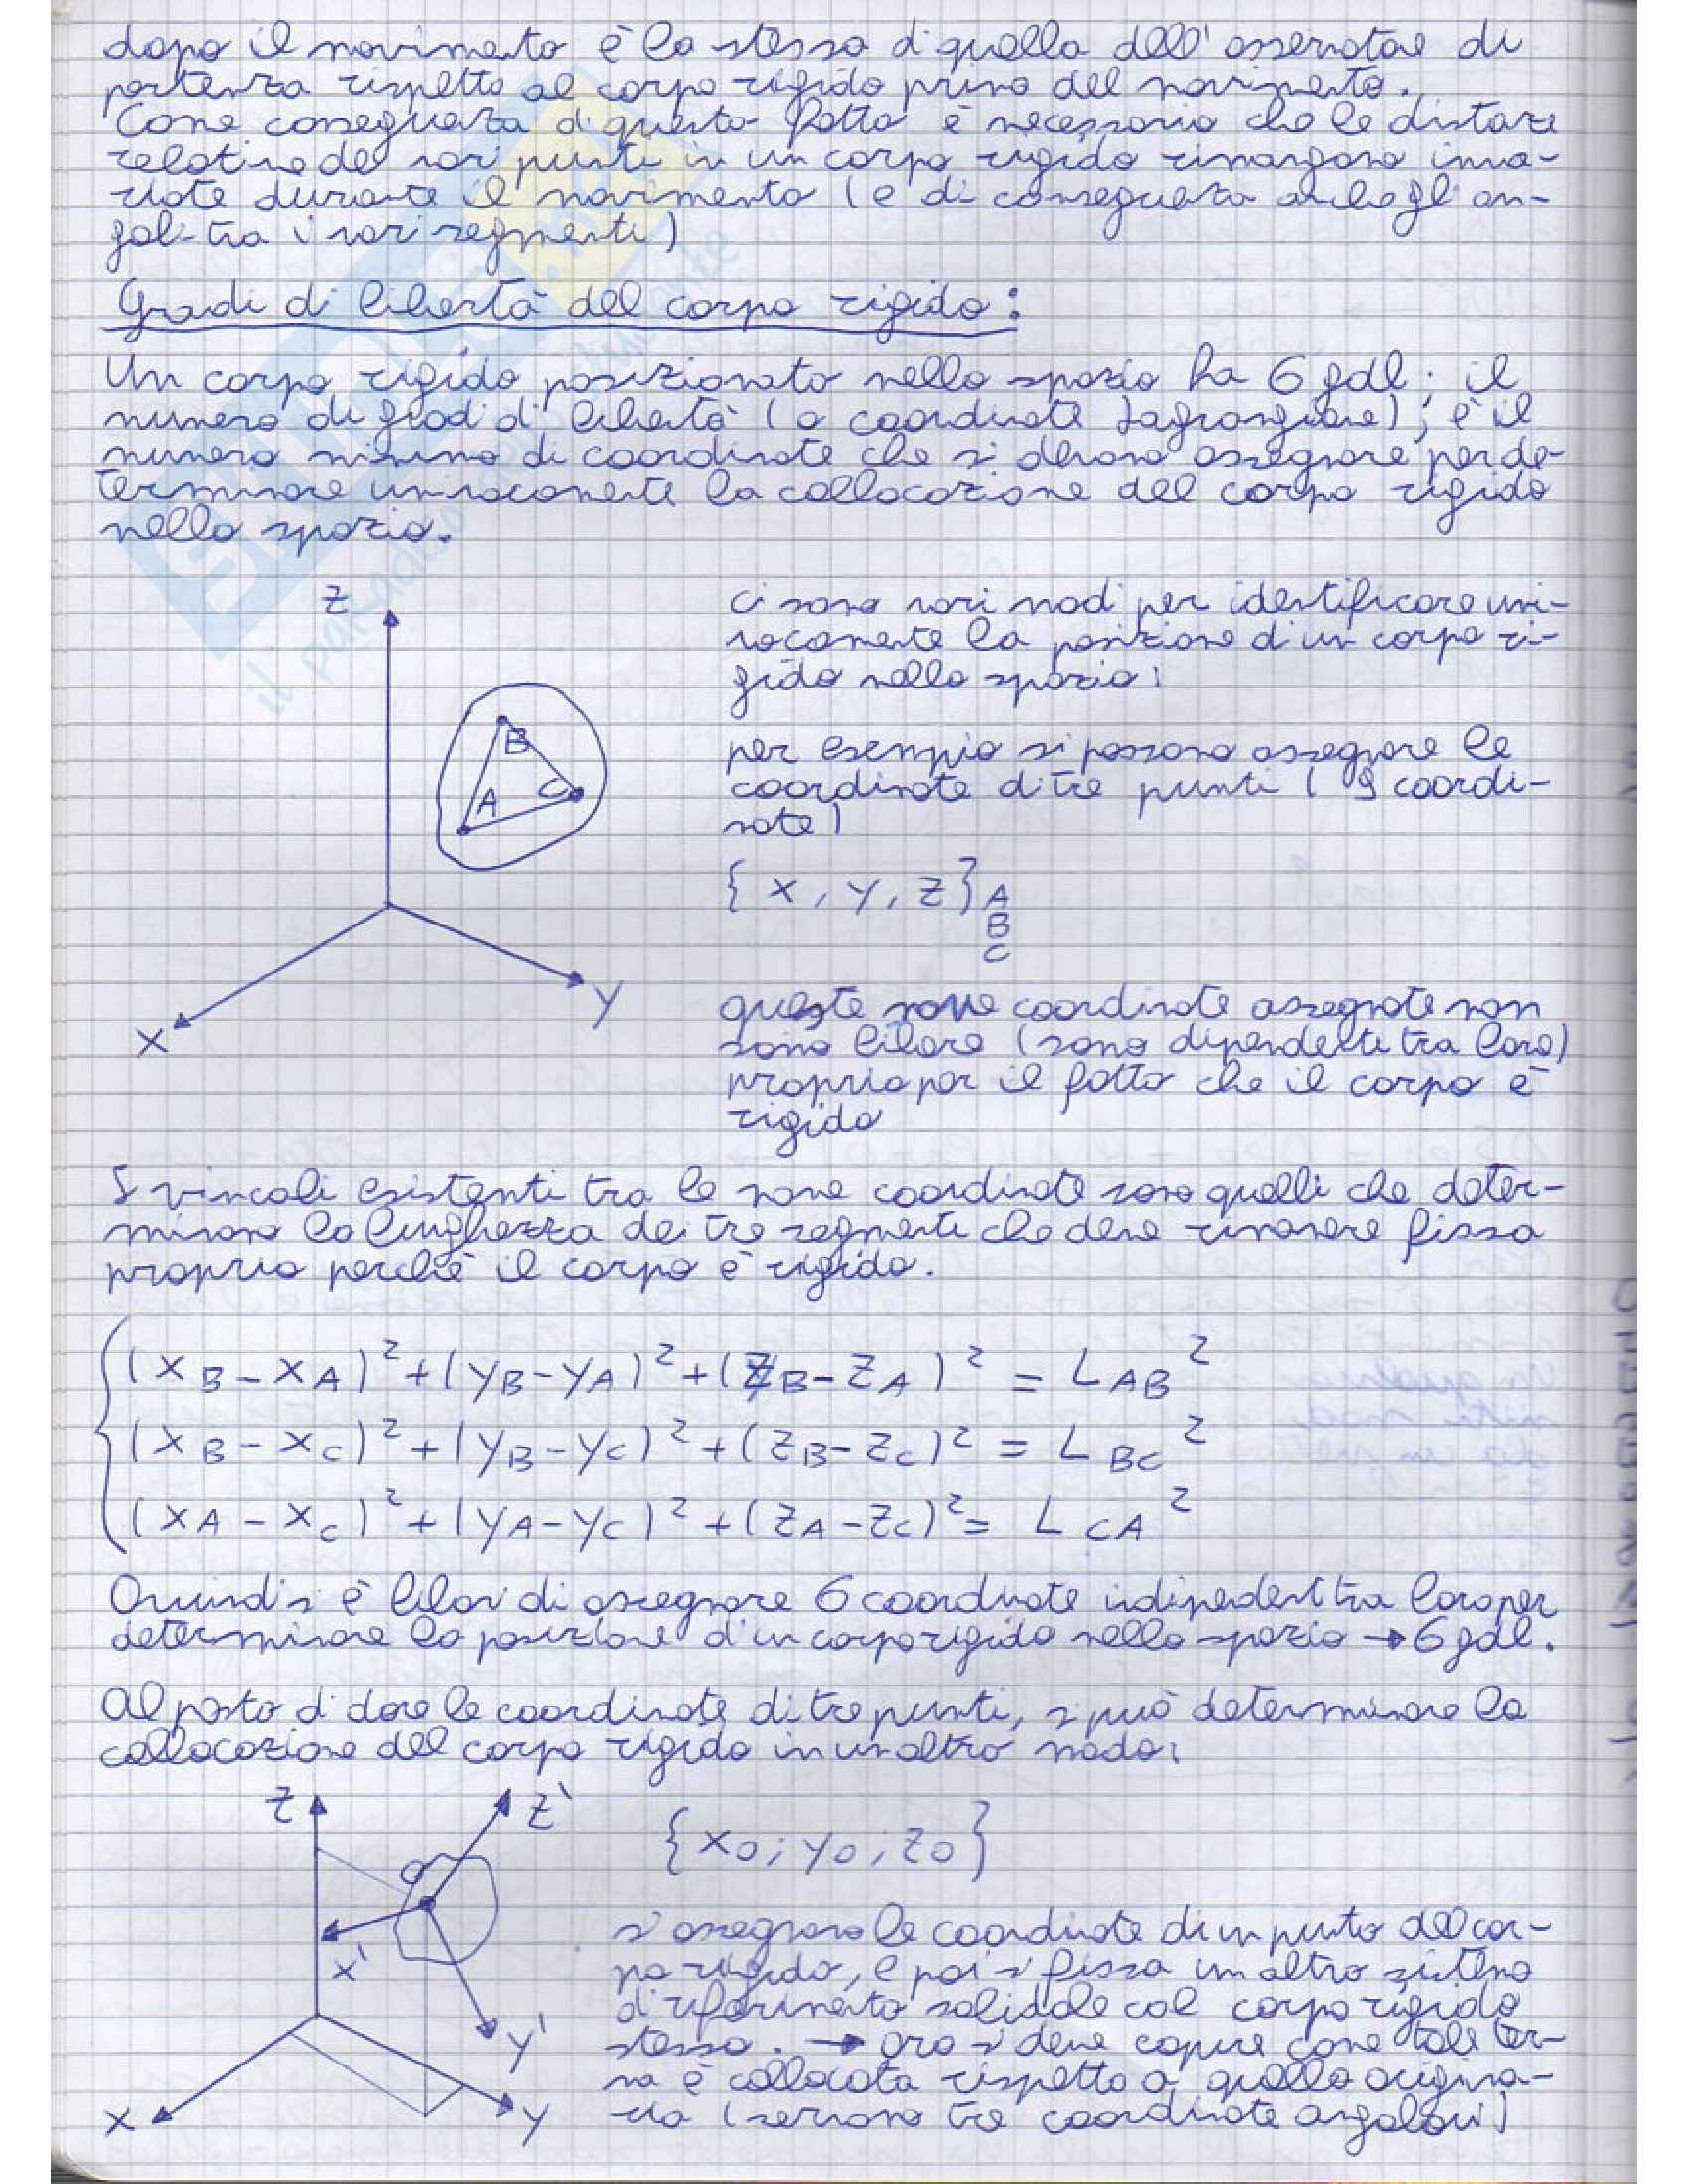 dopo il movimento è la stessa di quella dell'osservatore di
partenza rispetto al corpo rigido prima del movimento.
Come conseguenza di questo fatto è necessario che le distanze
relative dei vari punti in un corpo rigido rimangano inva-
riate durante il movimento (e di conseguenza anche gli an-
goli tra i vari segmenti)
Gradi di libertà del corpo rigido:
Un corpo rigido posizionato nello spazio ha 6 gdl; il
numero di gradi di libertà (o coordinate Lagrangiane); è il
numero minimo di coordinate che si devono assegnare per de-
terminare univocamente la collocazione del corpo rigido
nello spazio.
Z
ci sono vari modi per identificare uni-
vocamente la posizione di un corpo ri-
gido nello spazio:
B
A
C
X
Y
per esempio si possono assegnare le
coordinate di tre punti (9 coordi-
nate)
{ x, y, z } A
B
C
queste nove coordinate assegnate non
sono libere (sono dipendenti tra loro)
proprio per il fatto che il corpo è
rigido
I vincoli esistenti tra le nove coordinate sono quelli che deter-
minano la lunghezza dei tre segmenti che deve rimanere fissa
proprio perchè il corpo è rigido.
(x_B - x_A)² + (y_B - y_A)² + (z_B - z_A)² = L_AB²
(x_B - x_C)² + (y_B - y_C)² + (z_B - z_C)² = L_BC²
(x_A - x_C)² + (y_A - y_C)² + (z_A - z_C)² = L_CA²
Quindi si è liberi di assegnare 6 coordinate indipendenti tra loro per
determinare la posizione d'un corpo rigido nello spazio → 6 gdl.
Al posto di dare le coordinate di tre punti, si può determinare la
collocazione del corpo rigido in un altro modo:
Z
Z'
O
X'
Y'
X
Y
{ x_O ; y_O ; z_O }
si assegnano le coordinate di un punto del cor-
po rigido, e poi si fissa un altro sistema
di riferimento solidale col corpo rigido
stesso. → ora si deve capire come tale ter-
na è collocata rispetto a quella origina-
ria (servono tre coordinate angolari)